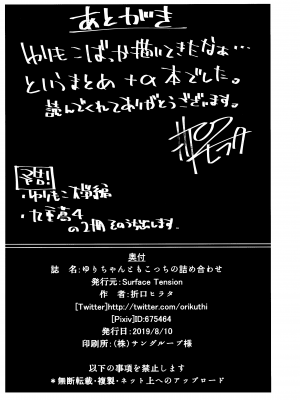 あとがき
ゆりもこばっか描いてきたなぁ…
というまとめ+α本でした。
読んでくれてありがとうございます。
折口ヒラタ
・ゆりもこ
の2冊
奥付
誌　名:ゆりちゃんともこっちの詰め合わせ
発行元:Surface Tension
作　者:折口ヒラタ
[Twitter]http://twitter.com/orikuthi
[Pixiv]ID:675464
発行日:2019/8/10
印刷所:(株)サングループ様
以下の事項を禁止します
＊無断転載・複製・ネット上へのアップロード